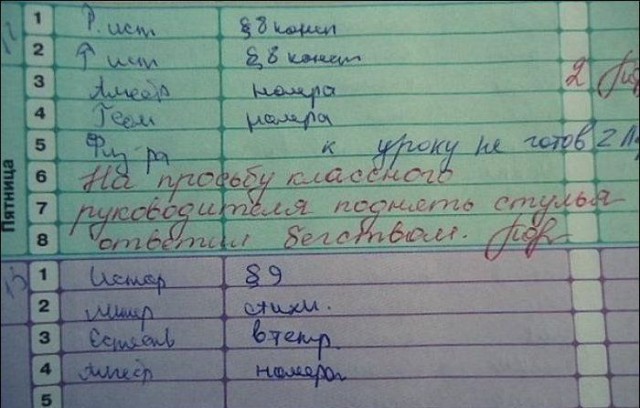 1 Р. ист § 8 консп
2 Р ист § 8 консп
3 Алгебр номера 2
4 Геом номера
5 Физ ра к уроку не готов 2
6 На просьбу классного
7 руководителя поднять стулья
8 ответил бегством.
Пятница
1 Истор § 9
2 Литер стихи.
3 Естеств в тетр
4 Алгебр номера
5